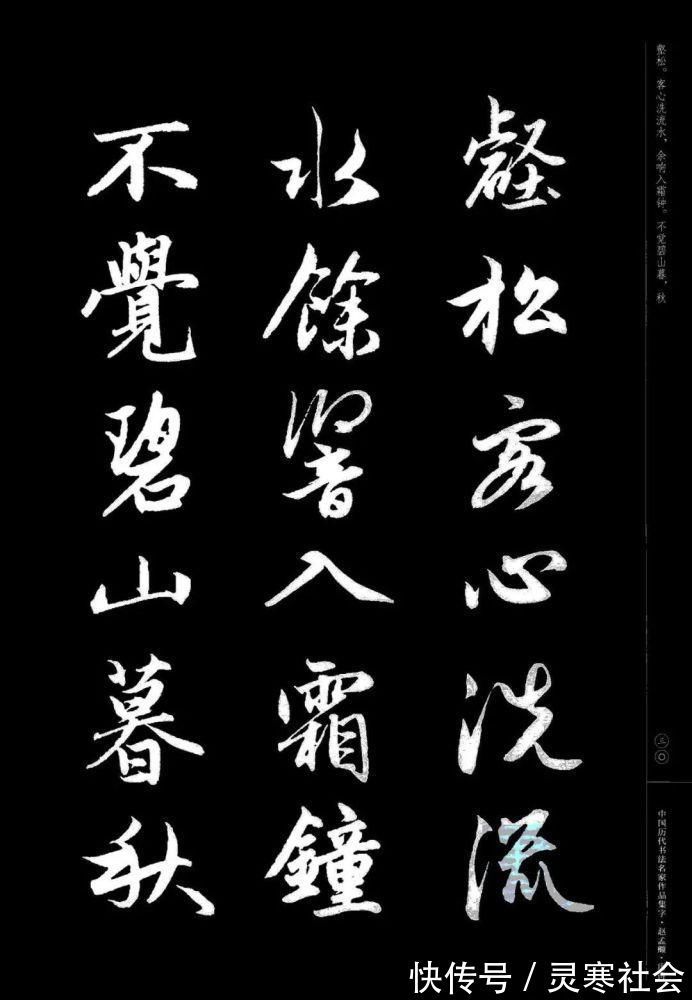 壑松客心洗流
水餘響入霜鐘
不覺碧山暮秋
壑松。客心洗流水，余响入霜钟。不觉碧山暮，秋
三〇
中国历代书法名家作品集字·赵孟頫·
快传号／灵寒社会